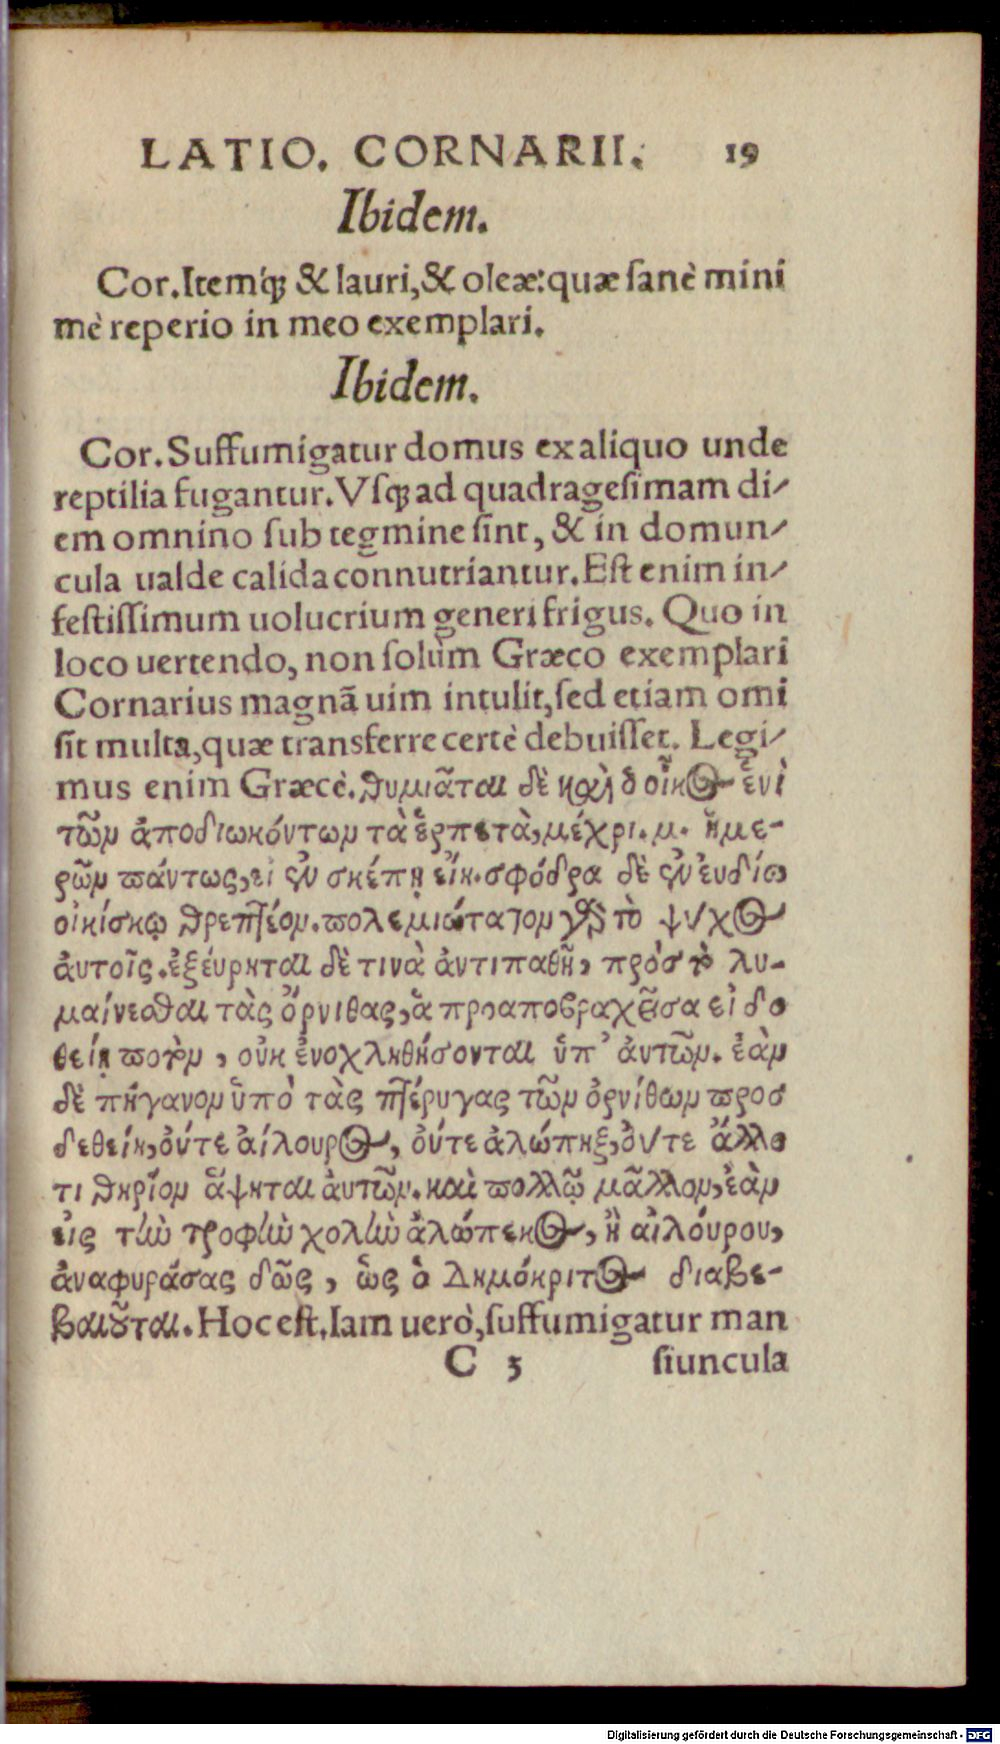 LATIO. CORNARII. 19
Ibidem.
Cor. Itemq́; & lauri, & oleæ: quæ sanè mini
mè reperio in meo exemplari.
Ibidem.
Cor. Suffumigatur domus ex aliquo unde
reptilia fugantur. Vsq; ad quadragesimam di⸗
em omnino sub tegmine sint, & in domun⸗
cula ualde calida connutriantur. Est enim in⸗
festissimum uolucrium generi frigus. Quo in
loco uertendo, non solùm Græco exemplari
Cornarius magnã uim intulit, sed etiam omi
sit multa, quæ transferre certè debuisset. Legi⸗
mus enim Græcè. θυμιᾶται δὲ καὶ ὁ οἶκος ἑνὶ
τῶν ἀποδιωκόντων τὰ ἑρπετὰ, μέχρι. μ. ἡμε-
ρῶν πάντως, εἰ ἐν σκέπῃ εἴη. σφόδρα δὲ ἐν ἐυδίῳ
οἰκίσκῳ θρεπτέον. πολεμιώτατον γὰρ τὸ ψύχος
ἀυτοῖς. ἐξέυρηται δὲ τινὰ ἀντιπαθῆ, πρὸς τὸ λυ-
μαίνεσθαι τὰς ὄρνιθας, ἃ προαποβραχεῖσα εἰ δο
θείη ποτὸν, οὐκ ἐνοχληθήσονται ὑπ᾽ ἀυτῶν. ἐὰν
δὲ πήγανον ὑπὸ τὰς πτέρυγας τῶν ὀρνίθων προσ
δεθείη, ὀύτε ἀίλουρος, ὀύτε ἀλώπηξ, ὀύτε ἄλλο
τι θηρίον ἅψηται ἀυτῶν. καὶ πολλῷ μᾶλλον, ἐὰν
ἐις τὴν τροφὴν χολὴν ἀλώπεκος, ἢ αἰλούρου,
ἀναφυράσας δῶς, ὡς ὁ Δημόκριτος διαβε-
βαιοῦται. Hoc est. Iam uerò, suffumigatur man
C 3 siuncula
Digitalisierung gefördert durch die Deutsche Forschungsgemeinschaft - DFG